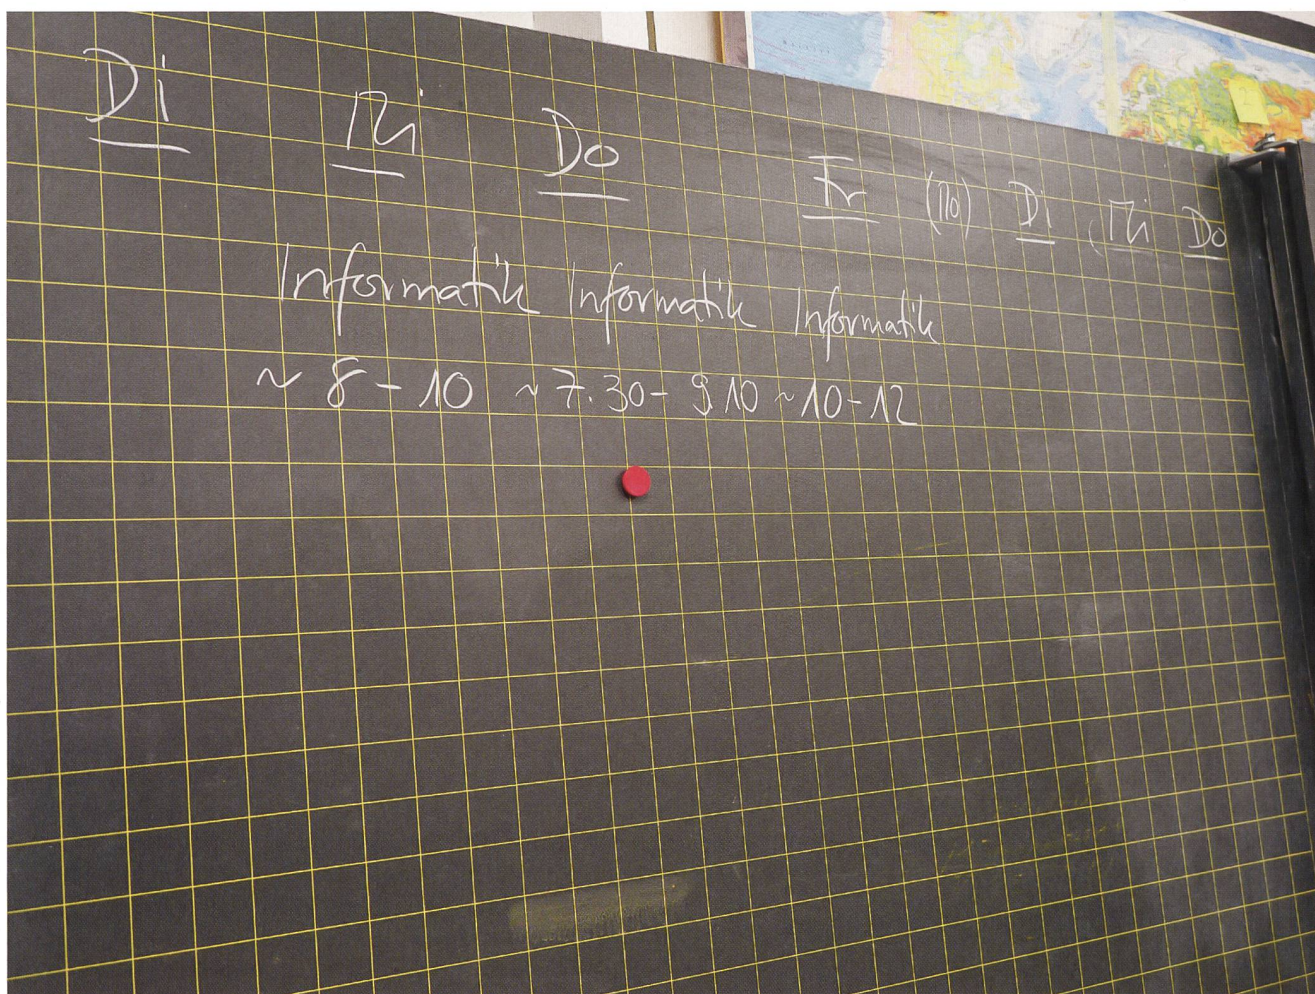 Di Mi Do Fr (Mo) Di Mi Do
Informatik Informatik Informatik
~ 8 - 10 ~ 7.30 - 9.10 ~ 10 - 12